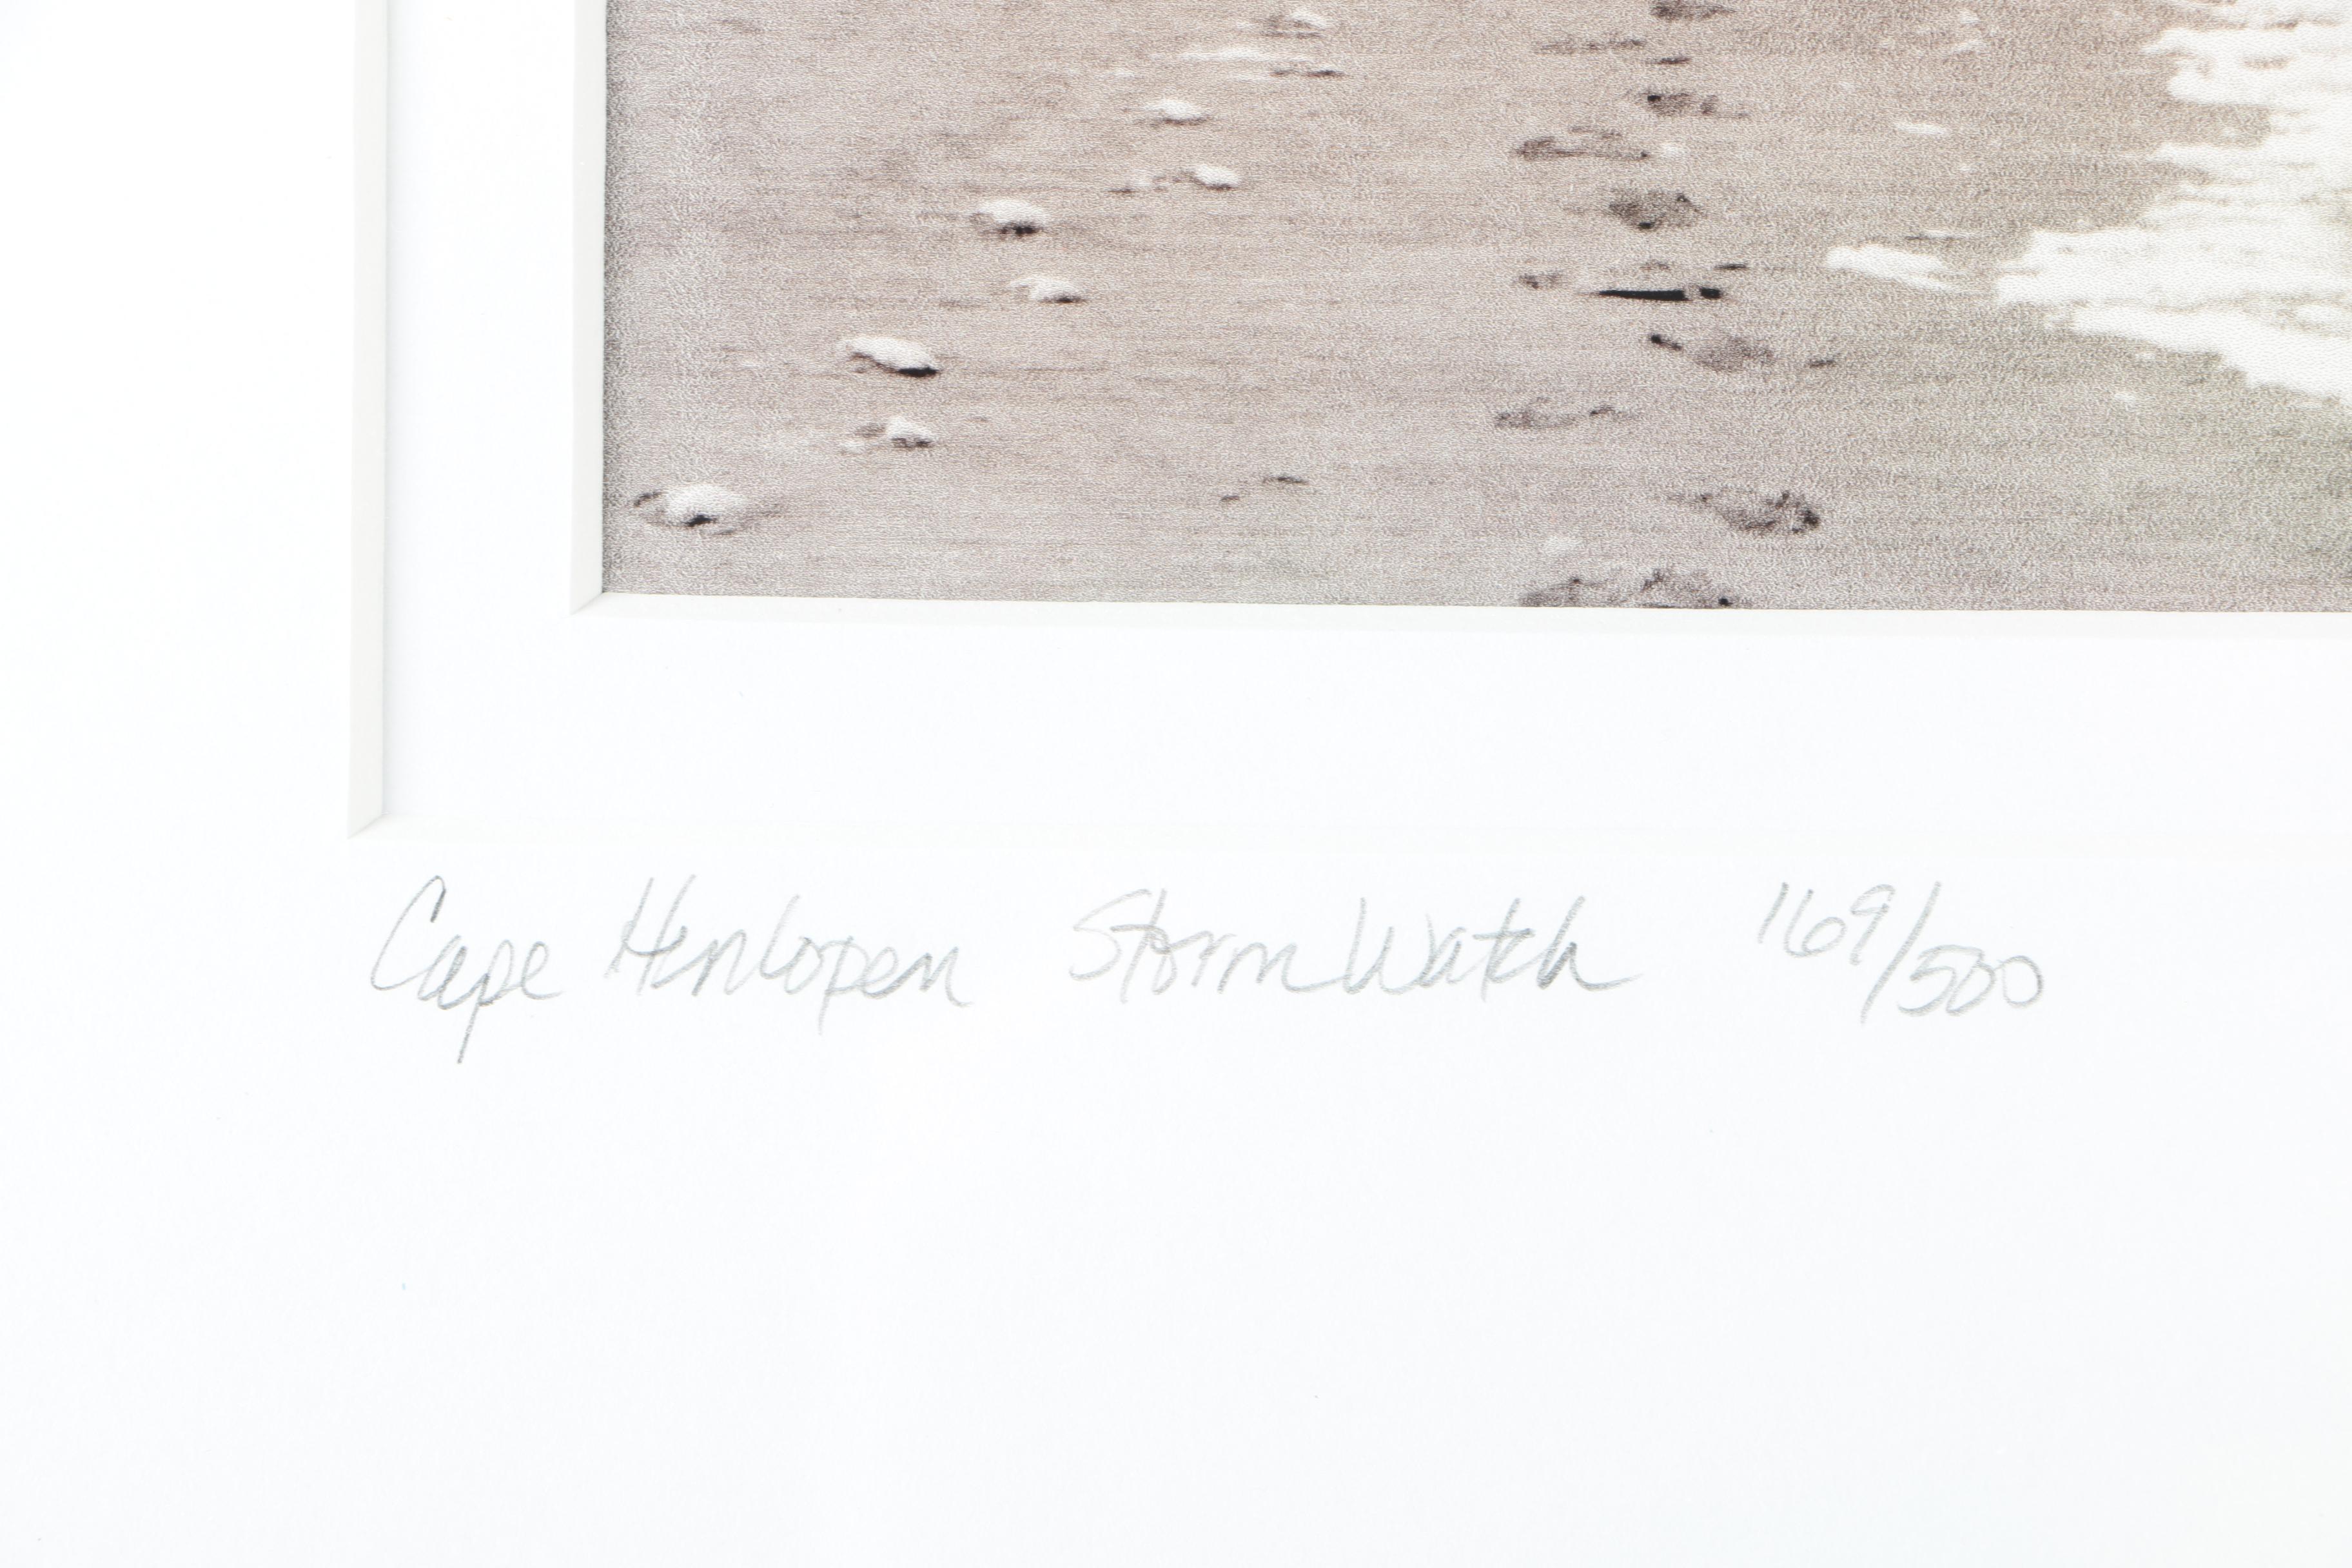 Cape Henlopen Storm Watch 169/500